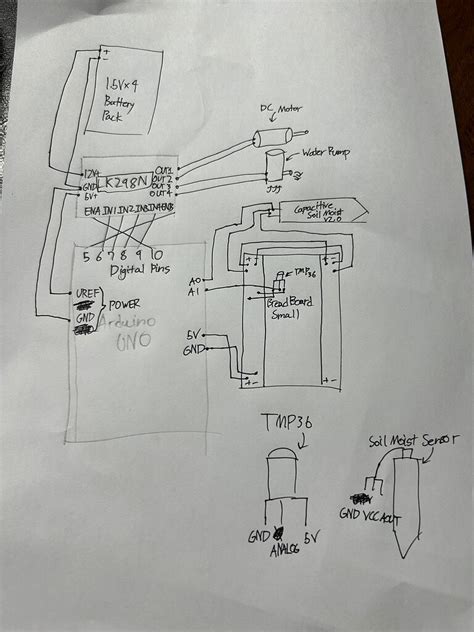 + -
1.5V×4
Battery
Pack
DC Motor
Water Pump
12V+
GND
5V+
K298N
OUT1
OUT2
OUT3
OUT4
ENA IN1 IN2 IN3 IN4 ENB
5 6 7 8 9 10
Digital Pins
Capacitive
Soil Moist
V2.0
+ -
+ -
TMP36
BreadBoard
Small
A0
A1
UREF
GND
POWER
Arduino
UNO
5V
GND
+ -
+ -
TMP36
GND
ANALOG
5V
Soil Moist Sensor
GND VCC AOUT